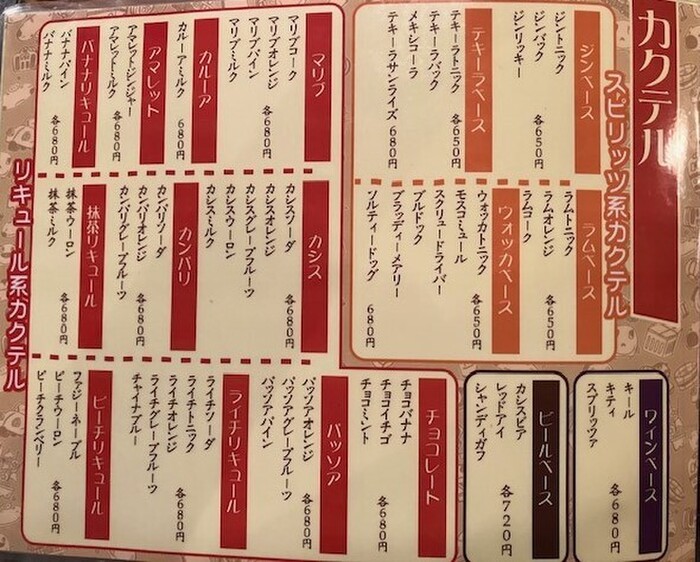 カクテル
スピリッツ系カクテル
ジンベース
ジントニック
ジンバック
ジンリッキー
各650円
テキーラベース
テキーラトニック
テキーラバック
メキシコーラ
各650円
テキーラサンライズ 680円
ラムベース
ラムトニック
ラムオレンジ
ラムコーク
各650円
ウォッカベース
ウォッカトニック
モスコミュール
スクリュードライバー
ブルドック
ブラッディーメアリー
各650円
ソルティードッグ 680円
マリブ
マリブコーク
マリブオレンジ
マリブパイン
マリブミルク
各680円
カルーア
カルーアミルク 680円
アマレット
アマレット・ジンジャー
アマレットミルク
各680円
バナナリキュール
バナナパイン
バナナミルク
各680円
カシス
カシスソーダ
カシスオレンジ
カシスグレープフルーツ
カシスウーロン
カシスミルク
各680円
カンパリ
カンパリソーダ
カンパリオレンジ
カンパリグレープフルーツ
各680円
抹茶リキュール
抹茶ウーロン
抹茶ミルク
各680円
リキュール系カクテル
チョコレート
チョコバナナ
チョコイチゴ
チョコミント
各680円
パッソア
パッソアオレンジ
パッソアグレープフルーツ
パッソアパイン
各680円
ライチリキュール
ライチソーダ
ライチトニック
ライチオレンジ
ライチグレープフルーツ
チャイナブルー
各680円
ピーチリキュール
ファジーネーブル
ピーチウーロン
ピーチクランベリー
各680円
ワインベース
キール
キティ
スプリッツァ
各680円
ビールベース
カシスビア
レッドアイ
シャンディガフ
各720円